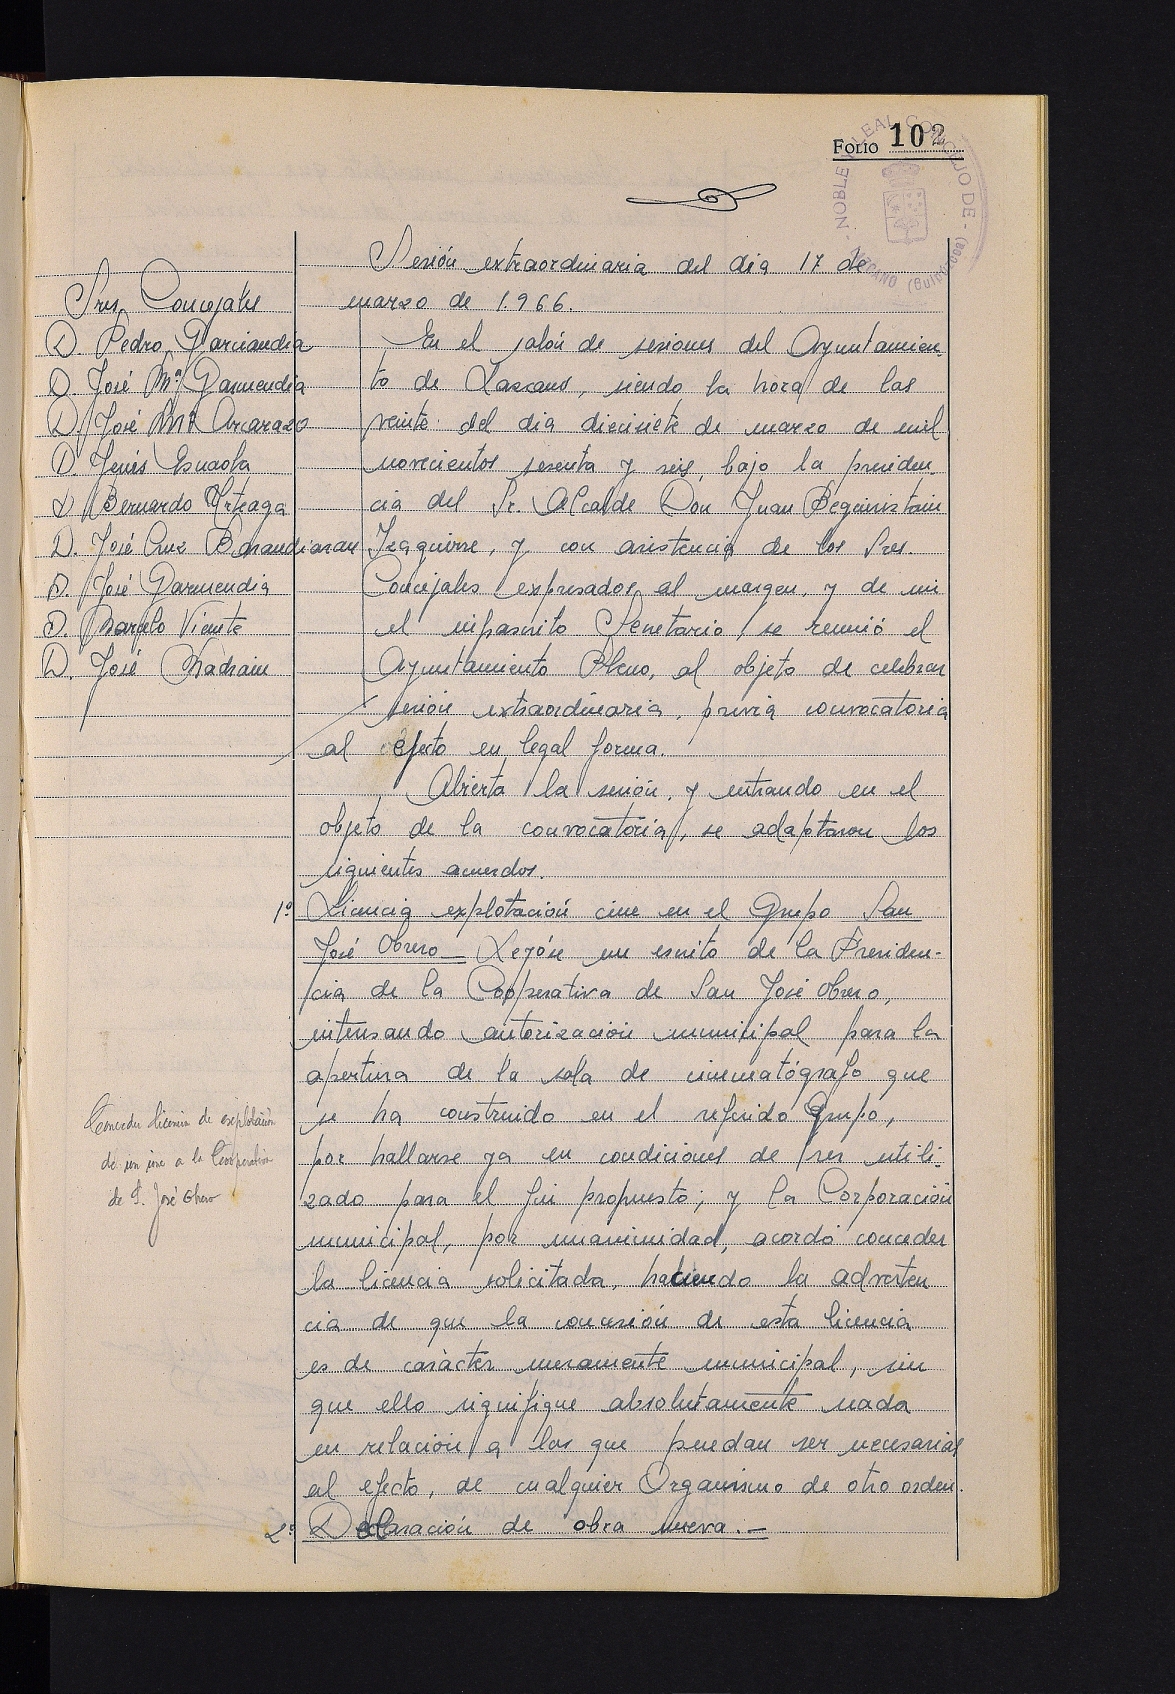 FOLIO 102
- NOBLE Y LEAL CONCEJO DE - LAZCANO (Guipúzcoa)
Sesión extraordinaria del dia 17 de
marzo de 1.966.
Sres. Concejales
D. Pedro Garciandia
D. José Mª Garmendia
D. José Mª Arcarazo
D. Jesús Esnaola
D. Bernardo Urteaga
D. José Cruz Barandiaran
D. José Garmendia
D. Marcelo Vicente
D. José Madrain
En el salón de sesiones del Ayuntamien-
to de Lazcano, siendo la hora de las
veinte del dia diecisiete de marzo de mil
novecientos sesenta y seis, bajo la presiden-
cia del Sr. Alcalde Don Juan Beguiristain
Izaguirre, y con asistencia de los Sres.
Concejales expresados al margen, y de mi
el infrascrito Secretario, se reunió el
Ayuntamiento Pleno, al objeto de celebrar
sesión extraordinaria, previa convocatoria
al efecto en legal forma.
Abierta la sesión, y entrando en el
objeto de la convocatoria, se adaptaron los
siguientes acuerdos.
1º Licencia explotación cine en el Grupo San
José Obrero — Leyóse un escrito de la Presiden-
cia de la Cooperativa de San José Obrero,
intersando autorización municipal para la
apertura de la sala de cinematógrafo que
se ha construido en el referido Grupo,
por hallarse ya en condiciones de ser utili-
zado para el fin propuesto; y la Corporación
municipal, por unanimidad, acordó conceder
la licencia solicitada, haciendo la adverten
cia de que la concesión de esta licencia
es de carácter meramente municipal, sin
que ello signifique absolutamente nada
en relación a las que puedan ser necesarias
al efecto, de cualquier Organismo de otro orden.
Conceder licencia de explotación
de un cine a la Cooperativa
de S. José Obrero
2º Declaración de obra nueva. —